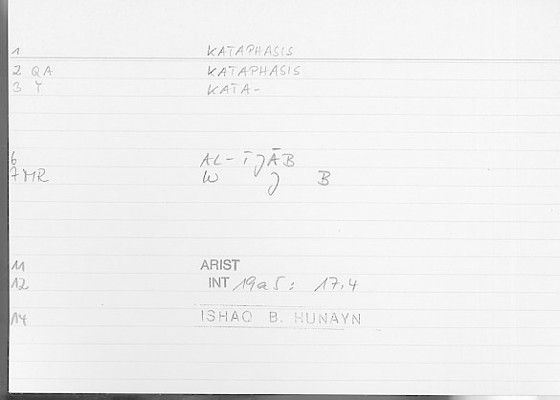 1 KATAPHASIS
2 QA KATAPHASIS
3 T KATA-
6 AL-ĪJĀB
7 MR W J B
11 ARIST
12 INT 19a5: 17,4
14 ISHAQ B. HUNAYN